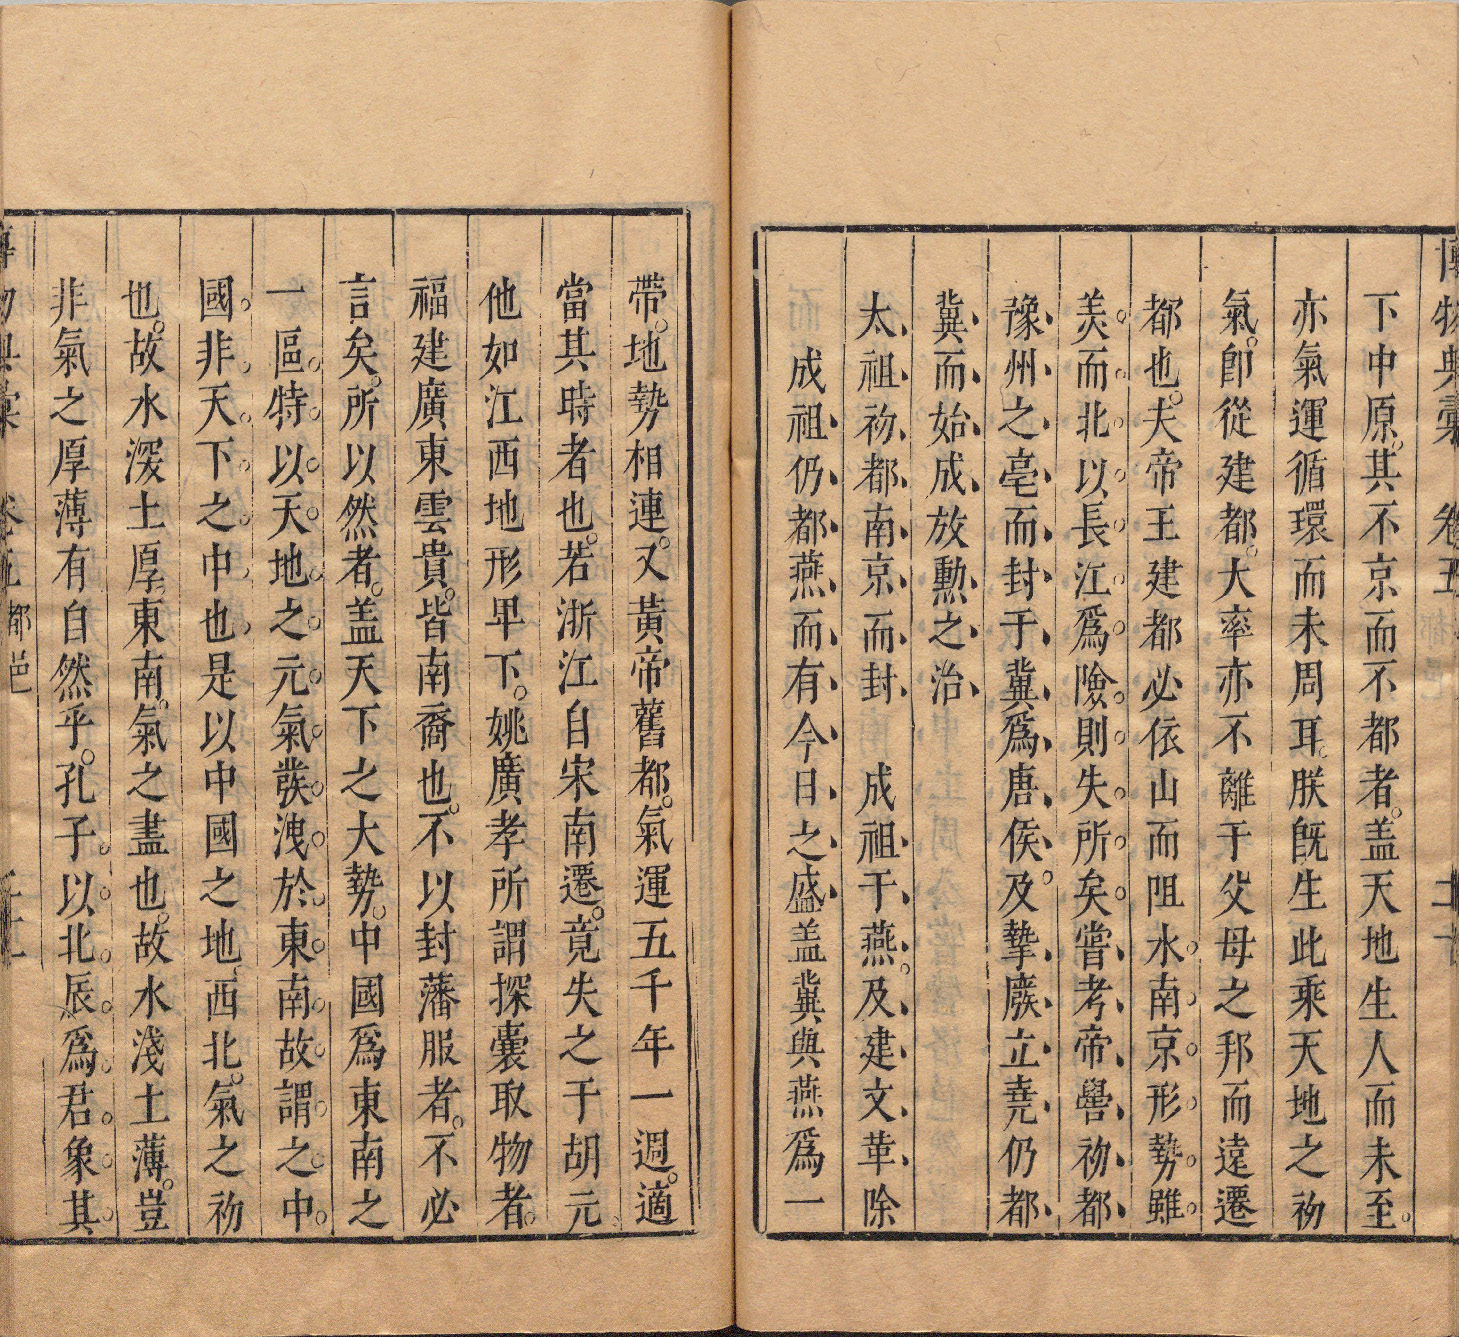 博物典彙 卷五
下中原。其不京而不都者。盖天地生人而未至。
亦氣運循環而未周耳。朕既生此乘天地之初
氣。即從建都。大率亦不離于父母之邦而遠遷
都也。夫帝王建都必依山而阻水。南京形勢。雖
美而北以長江爲險。則失所矣。嘗考帝嚳初都
豫州之亳而封于冀爲唐侯。及摯廢立堯仍都
冀而始成放勲之治
太祖初都南京而封 成祖于燕。及建文革除
成祖仍都燕而有今日之盛盖冀與燕爲一
帶。地勢相連。又黃帝舊都。氣運五千年一週。適
當其時者也。若浙江自宋南遷。竟失之于胡元
他如江西地形卑下。姚廣孝所謂探囊取物者。
福建廣東雲貴。皆南裔也。不以封藩服者。不必
言矣。所以然者。盖天下之大勢。中國爲東南之
一區。特以天地之元氣發洩於東南。故謂之中
國。非天下之中也是以中國之地西北。氣之初
也。故水深土厚。東南。氣之盡也。故水淺土薄。豈
非氣之厚薄有自然乎。孔子。以北辰爲君象其
都邑